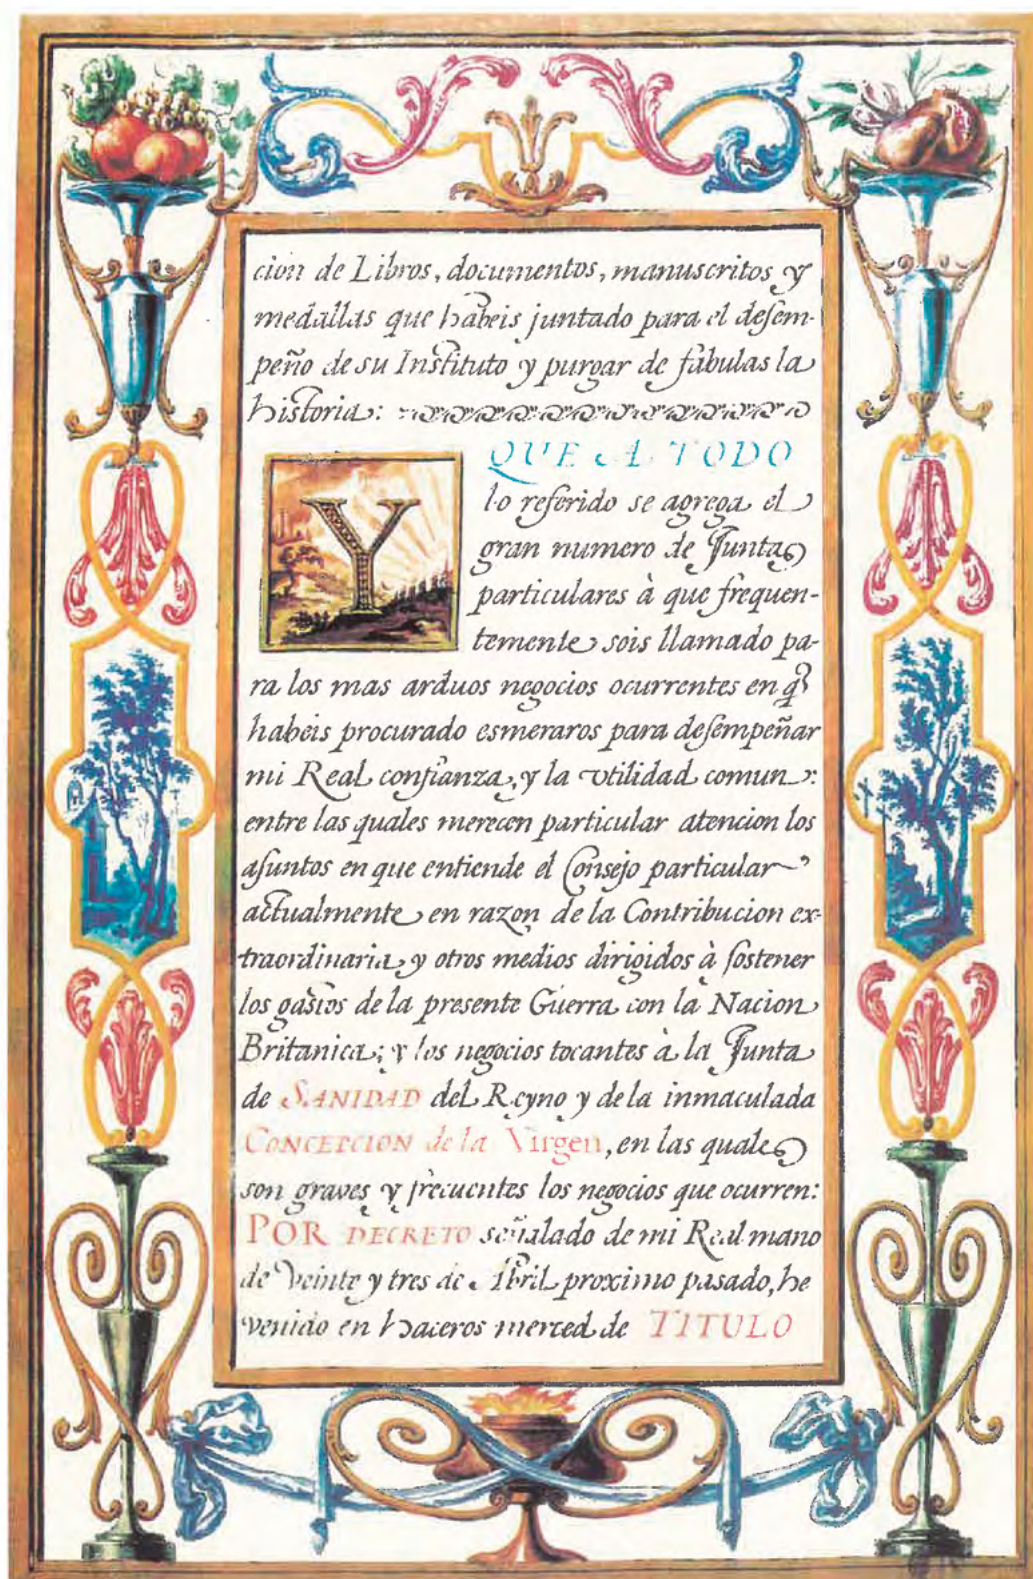 cion de Libros, documentos, manuscritos y
medallas que habeis juntado para el desem-
peño de su Instituto y purgar de fábulas la
historia:
Y QUE A TODO
lo referido se agrega el
gran numero de Juntas
particulares à que frequen-
temente sois llamado pa-
ra los mas arduos negocios ocurrentes en q̃
habeis procurado esmeraros para desempeñar
mi Real confianza, y la vtilidad comun:
entre las quales merecen particular atencion los
asuntos en que entiende el Consejo particular
actualmente en razon de la Contribucion ex-
traordinaria y otros medios dirigidos à sostener
los gastos de la presente Guerra con la Nacion
Britanica; y los negocios tocantes à la Junta
de SANIDAD del Reyno y de la inmaculada
CONCEPCION de la Virgen, en las quales
son graves y frecuentes los negocios que ocurren:
POR DECRETO señalado de mi Real mano
de Veinte y tres de Abril proximo pasado, he
venido en haceros merced de TITULO